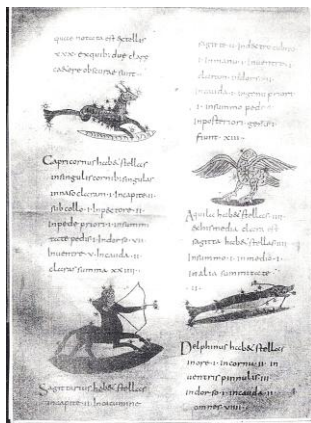 quae notata est & stellas
xxx · ex quib; due clare
cadere obscurae sunt
Capricornus hab& stellas
in singulis cornibus singulas
in naso claram · I · in capite · II ·
sub collo · I · In pectore · II ·
in pede priori · I · in summi
tate pedis · I · In dorso · VII ·
In uentre · V · In cauda · II ·
claras summa xxIIII ·
Sagittarius hab& stellas
in capite · II · In cacumine
sagitte · II · in dextro cubito
· I · In manu · I · In uentre · I ·
claram in dorso · II ·
in cauda · I · in genu priori
· I · in summo pede · I ·
in posteriori genu · I ·
fiunt · XIII ·
Aquila hab& stellas · IIII ·
media clara est
sagitta hab& stellas · IIII ·
In summo · I · in medio · I ·
in alia summitate
· II ·
Delphinus hab& stellas
in ore · I · in cornu · II · in
uentris pinnulis · III ·
in dorso · I · in cauda · II ·
omnes · VIIII ·